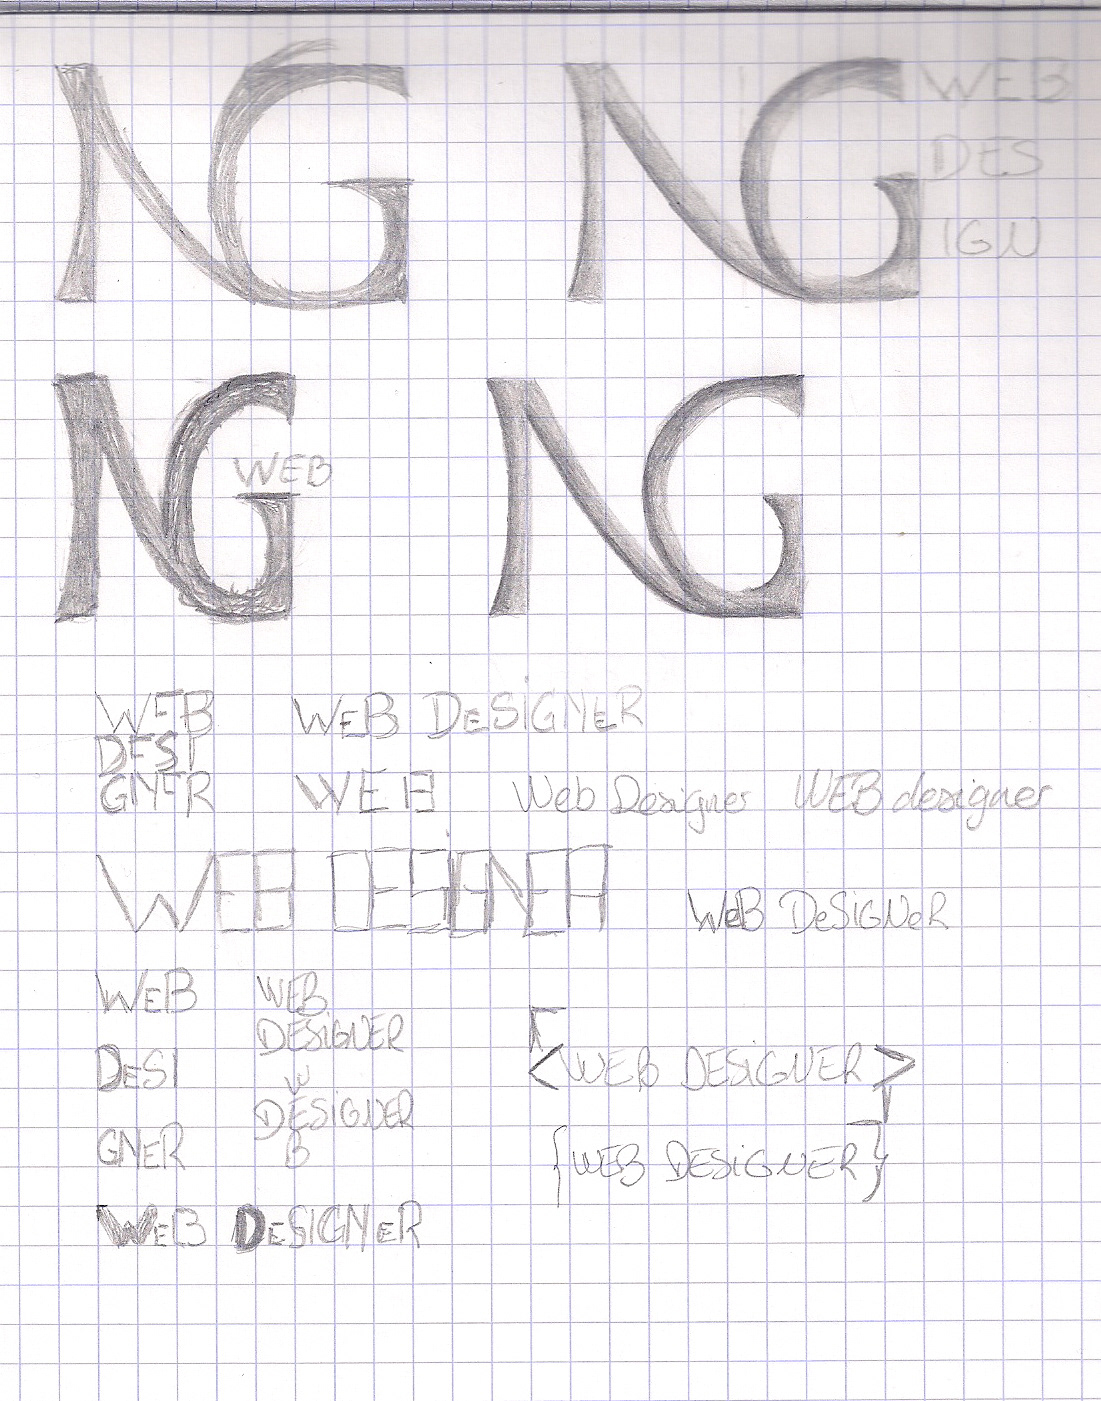 NG NG WEB
DES
IGN
NG NG
WEB
WEB WEB DESiGNER
DESI
GNER WEB Web Designer WEB designer
WEB DESiGNER
WeB DeSiGNeR
WEB WEB
DESiGNER
DESI W
DESiGNER
GNER B
<WEB DESiGNER>
{WEB DESiGNER}
WEB DESIGNER